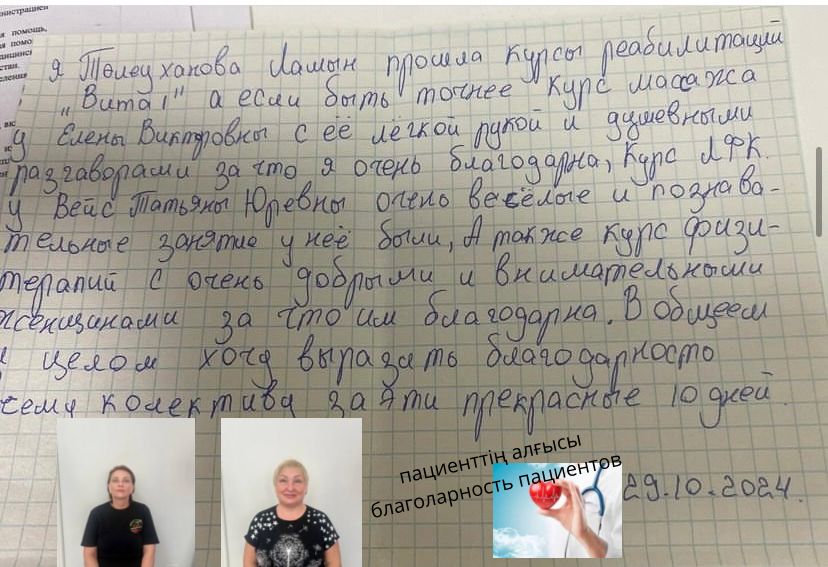 нистрацией
я помощь,
Я Төлеуханова Ламын прошла курсы реабилитаций
„Вита 1" а если быть точнее курс массажа
у Елены Викторовны с её лёгкой рукой и душевными
разгаворами за что я очень благодарна, Курс ЛФК.
у Вейс Татьяны Юревны очень весёлые и познава-
тельные занятие у неё были, А также курс физи-
терапий с очень добрыми и внимательными
женщинами за что им благодарна. В общеем
целом хочу выразать благодарность
сему колективу за эти прекрасные 10 дней.
пациенттің алғысы
благоларность пациентов
29.10.2024.